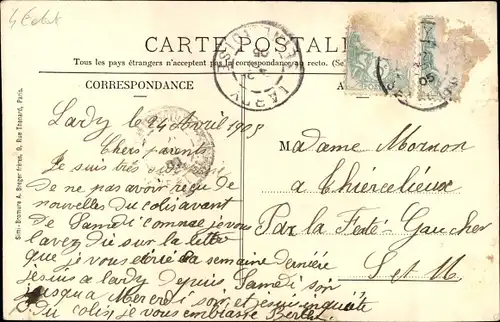 CARTE POSTALE
Tous les pays étrangers n'acceptent pas la correspondance au recto. (Se
CORRESPONDANCE
Lardy le 24 Avril 1905
Chers parents
Je suis très
De ne pas avoir reçu de
nouvelles du colis avant
De Samedi comme je vous
l'avez dis sur la lettre
que je vous écrit la semaine dernière
je suis a lardy depuis Samedi soir
jusqua Mercredi soir et je suis inquiète
Du colis, je vous embrasse Berthe
Madame Mornon
a Thiercelieux
Par la Ferté-Gaucher
S et M
Simi-Bromure A. Breger frères, 9, Rue Thénard, Paris.
LARDY
05